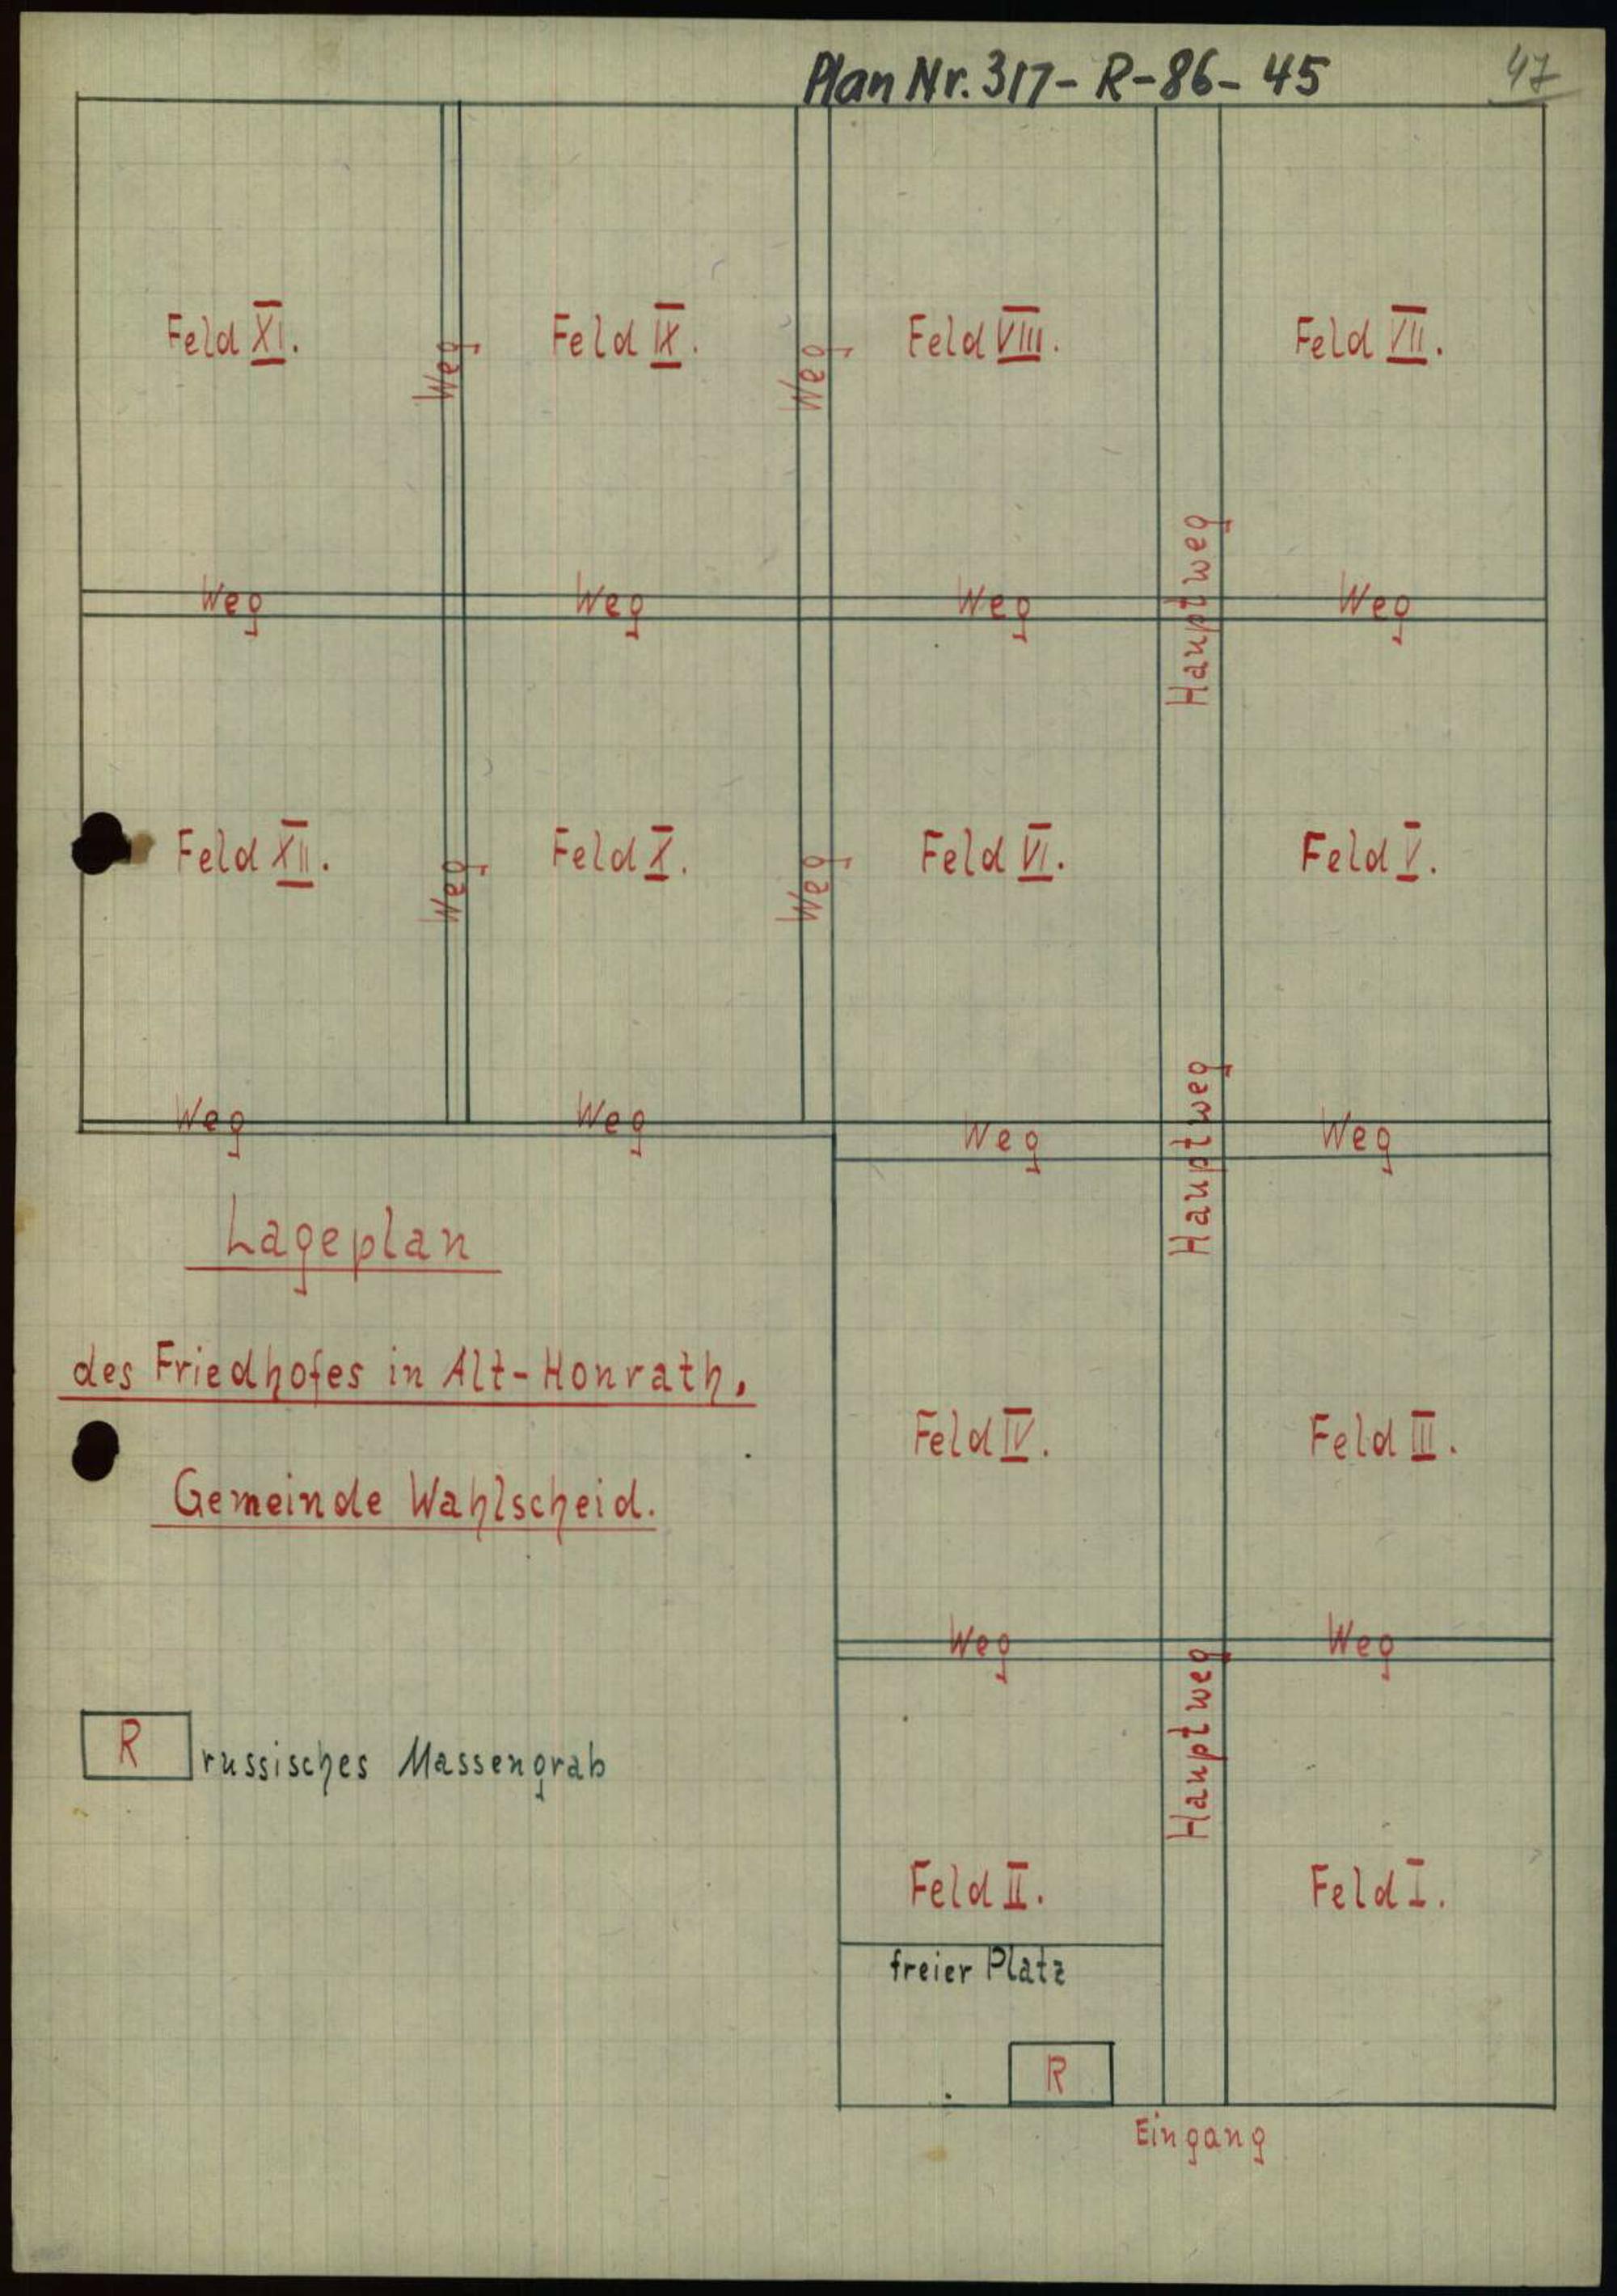 Plan Nr. 317-R-86-45
47
Feld XI.
Weg
Feld IX.
Weg
Feld VIII.
Feld VII.
Hauptweg
Weg
Weg
Weg
Weg
Feld XII.
Weg
Feld X.
Weg
Feld VI.
Feld V.
Hauptweg
Weg
Weg
Weg
Weg
Lageplan
des Friedhofes in Alt-Honrath.
Gemeinde Wahlscheid.
Feld IV.
Feld III.
Weg
Weg
Hauptweg
R russisches Massengrab
Feld II.
Feld I.
freier Platz
R
Eingang